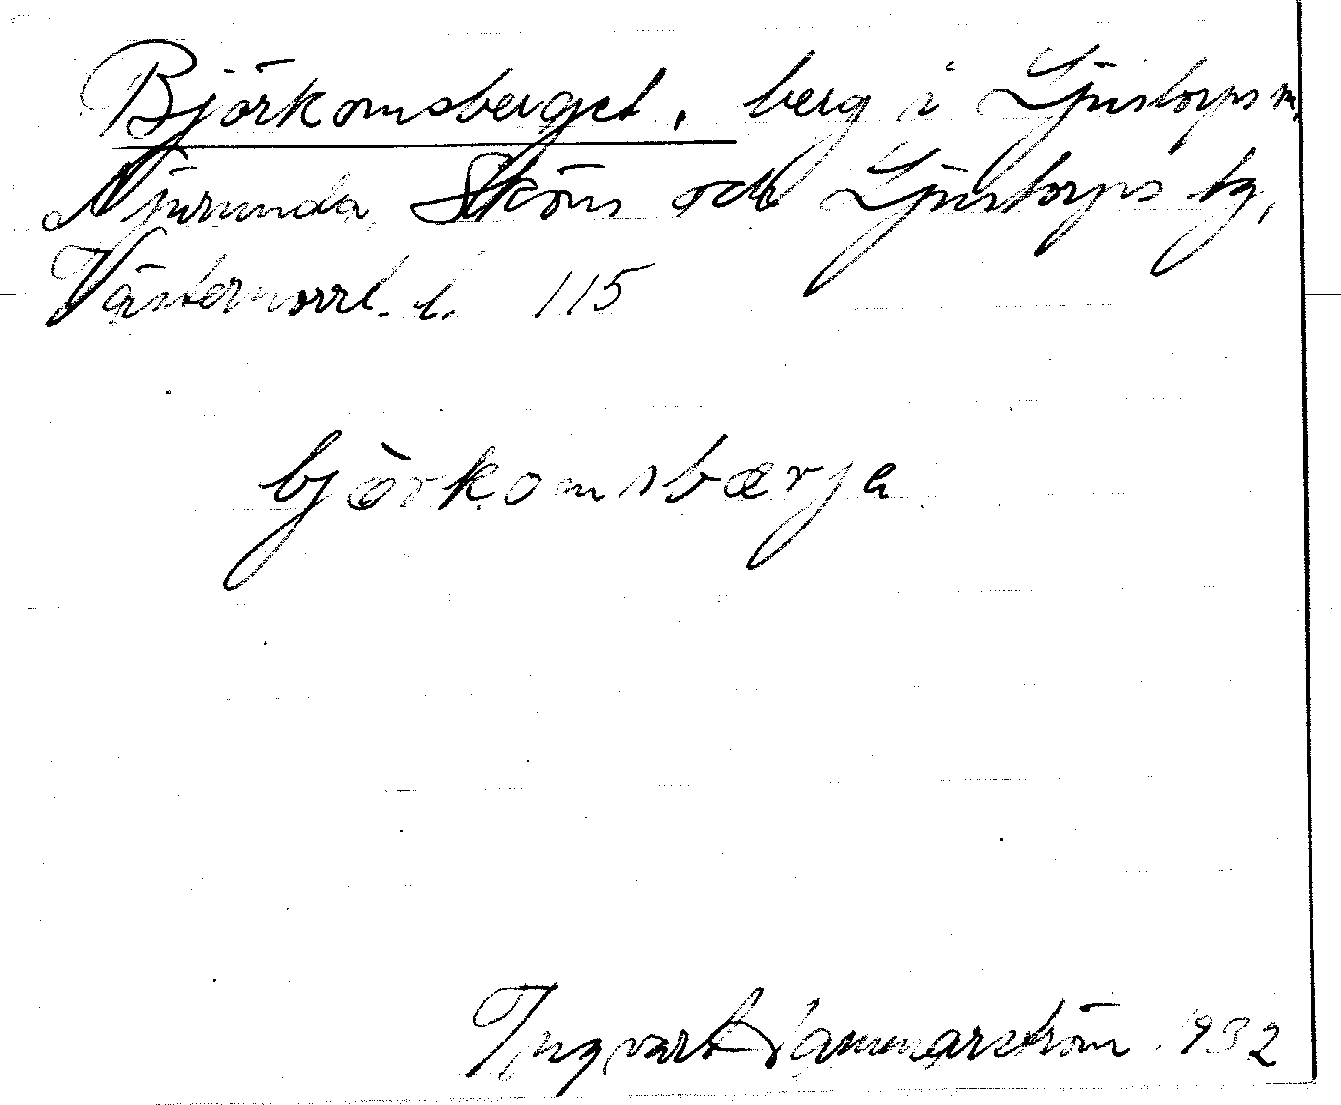 Björkomsberget, berg i Ljustorps sn,
Njurunda, Sköns och Ljustorps tg,
Västernorrl. l. 115
björkomsbærja
Ingvar Hammarström 1932